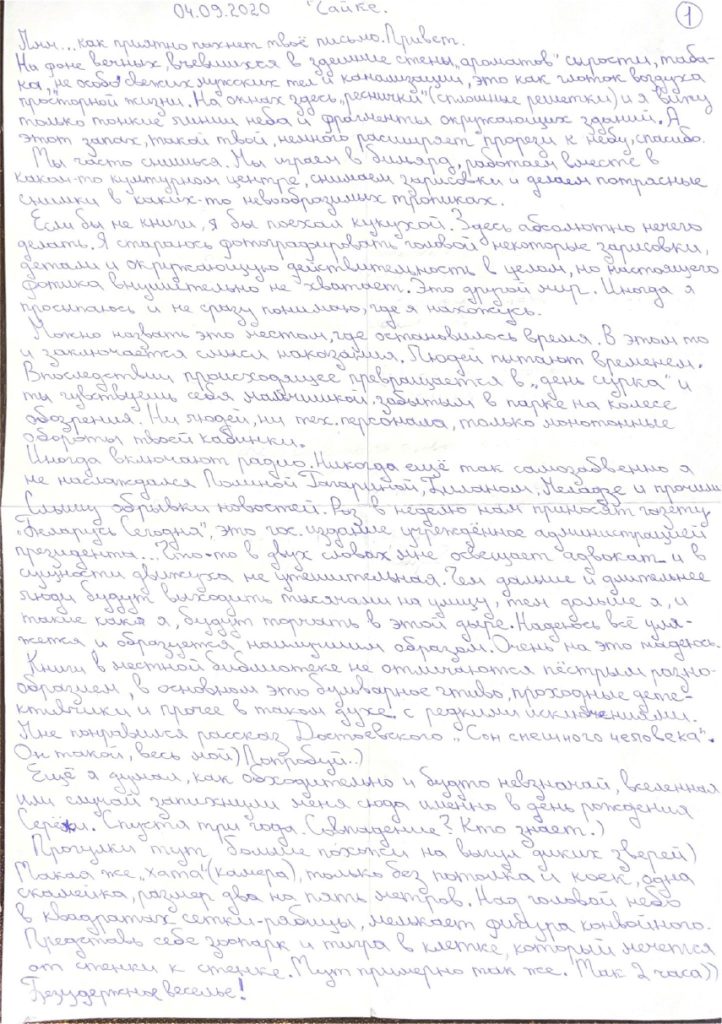 04.09.2020 "Сайке.
1
Ммм...как приятно пахнет твоё письмо. Привет.
На фоне вечных, въевшихся в здешние стены „ароматов" сырости, таба-
ка, не особо свежих мужских тел и канализации, это как глоток воздуха
просторной жизни. На окнах здесь „реснички" (сплошные решетки) и я вижу
только тонкие линии неба и фрагменты окружающих зданий. А
этот запах, такой твой, немного расширяет прорези к небу, спасибо.
Ты часто снишься. Мы играем в бильярд, работаем вместе в
каком-то культурном центре, снимаем зарисовки и делаем потрясные
снимки в каких-то невообразимых тропиках.
Если бы не книги, я бы поехал кукухой. Здесь абсолютно нечего
делать. Я стараюсь фотографировать головой некоторые зарисовки,
детали и окружающую действительность в целом, но настоящего
фотика внушительно не хватает. Это другой мир. Иногда я
просыпаюсь и не сразу понимаю, где я нахожусь.
Можно назвать это местом, где остановилось время. В этом то
и заключается смысл наказания. Людей пытают временем.
Впоследствии происходящее превращается в „день сурка" и
ты чувствуешь себя забытым в парке на колесе
обозрения. Ни людей, ни тех.персонала, только монотонные
обороты твоей кабинки.
Иногда включают радио. Никогда ещё так самозабвенно я
не наслаждался Полиной Гагариной, Биланом, Меладзе и прочими
Слышу обрывки новостей. Раз в неделю нам приносят газету
„Беларусь Сегодня", это гос. издание учреждённое администрацией
президента... Что-то в двух словах мне освещает адвокат и в
сущности движуха не утешительная. Чем дальше и длительнее
люди будут выходить тысячами на улицу, тем дольше я, и
такие как я, будут торчать в этой дыре. Надеюсь всё уля-
жется и образуется наилучшим образом. Очень на это надеюсь.
Книги в местной библиотеке не отличаются пёстрым разно-
образием, в основном это бульварное чтиво, проходные дете-
ктивчики и прочее в таком духе с редкими исключениями.
Мне понравился рассказ Достоевского „Сон смешного человека".
Он такой, весь мой) Попробуй..)
Ещё я думал, как обходительно и будто невзначай, вселенная
или случай запихнули меня сюда именно в день рождения
Серёжи. Спустя три года. Совпадение? Кто знает.)
Прогулки тут, больше похожи на выгул диких зверей)
Такая же „хата" (камера), только без потолка и коек, одна
скамейка, размер два на пять метров. Над головой небо
в квадратах сетки-рабицы, мелькает фигура конвойного.
Представь себе зоопарк и тигра в клетке, который мечется
от стенки к стенке. Тут примерно так же. Так 2 часа))
Безудержное веселье!